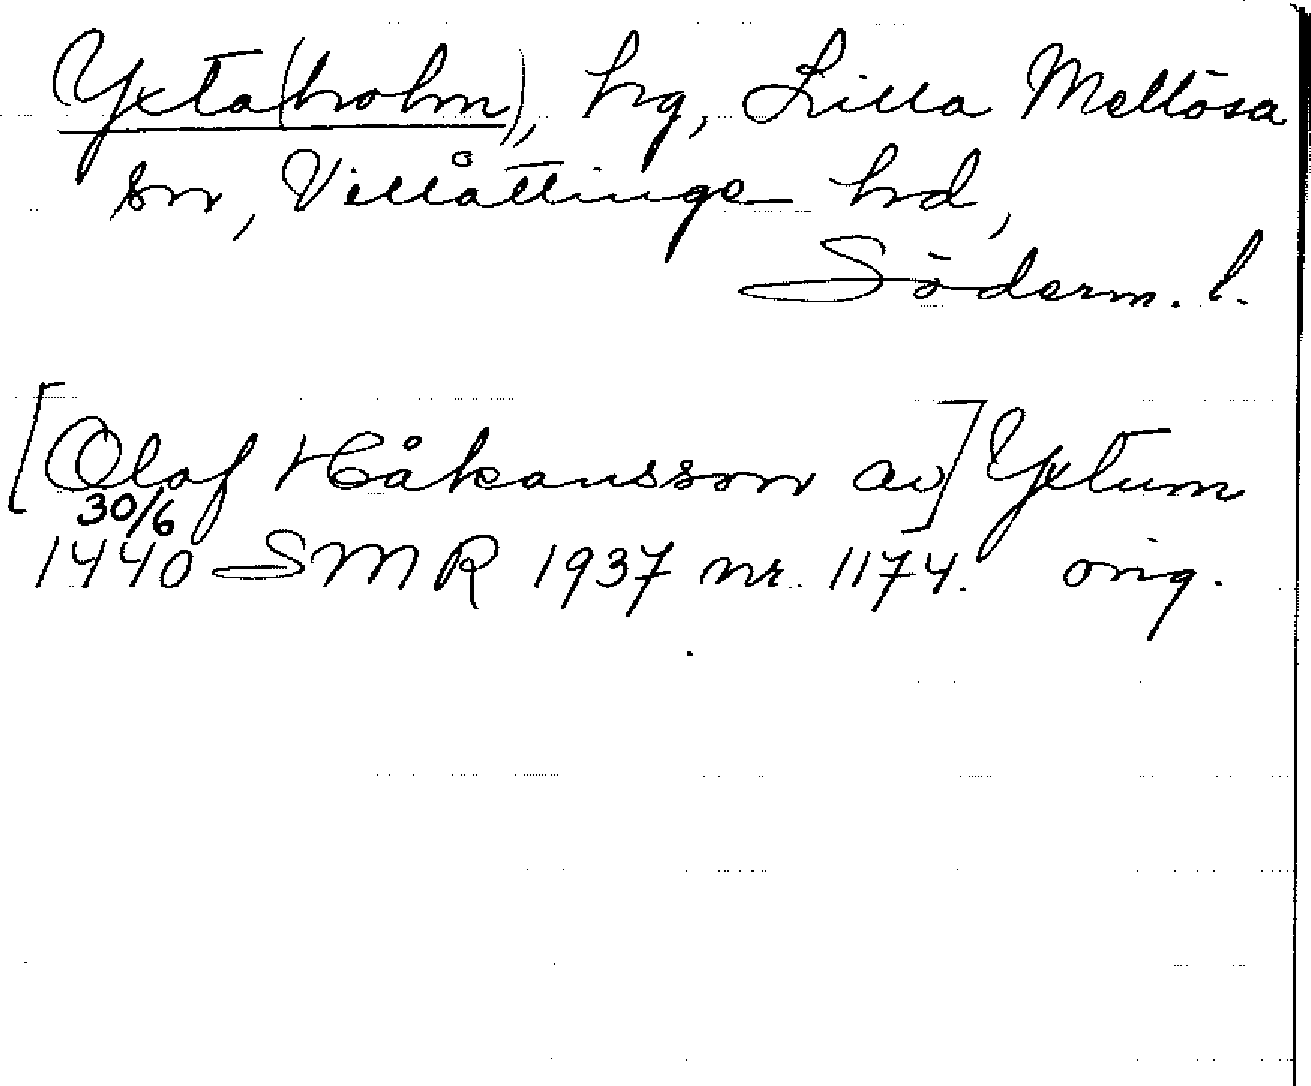 Yxta(holm), hg, Lilla Mellösa
sn, Villåttinge hd,
Söderm. l.
[Olaf Håkansson av] Yxtum
30/6
1440 SMR 1937 nr. 1174. orig.